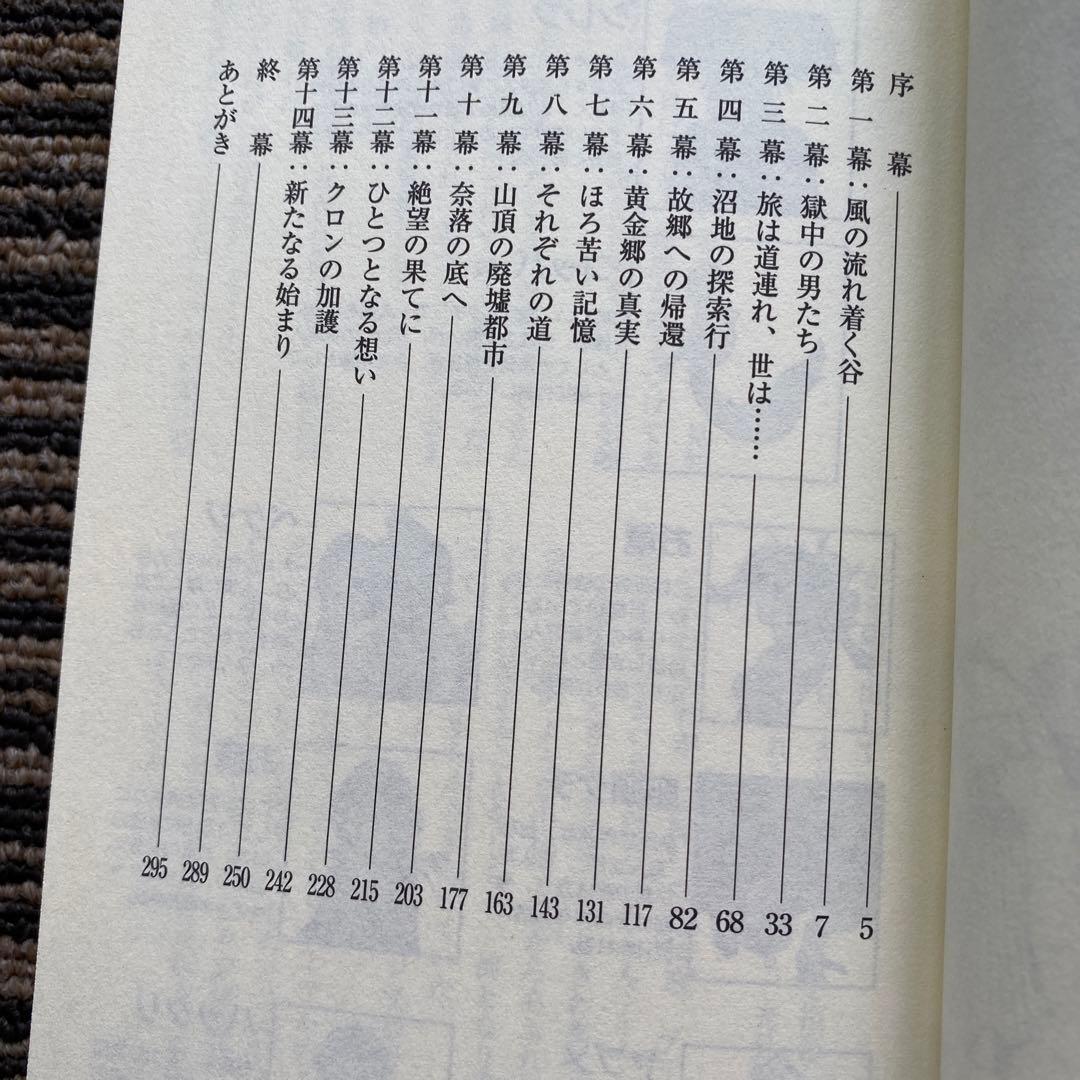 序幕 5
第一幕：風の流れ着く谷 7
第二幕：獄中の男たち 33
第三幕：旅は道連れ、世は…… 68
第四幕：沼地の探索行 82
第五幕：故郷への帰還 117
第六幕：黄金郷の真実 131
第七幕：ほろ苦い記憶 143
第八幕：それぞれの道 163
第九幕：山頂の廃墟都市 177
第十幕：奈落の底へ 203
第十一幕：絶望の果てに 215
第十二幕：ひとつとなる想い 228
第十三幕：クロンの加護 242
第十四幕：新たなる始まり 250
終幕 289
あとがき 295